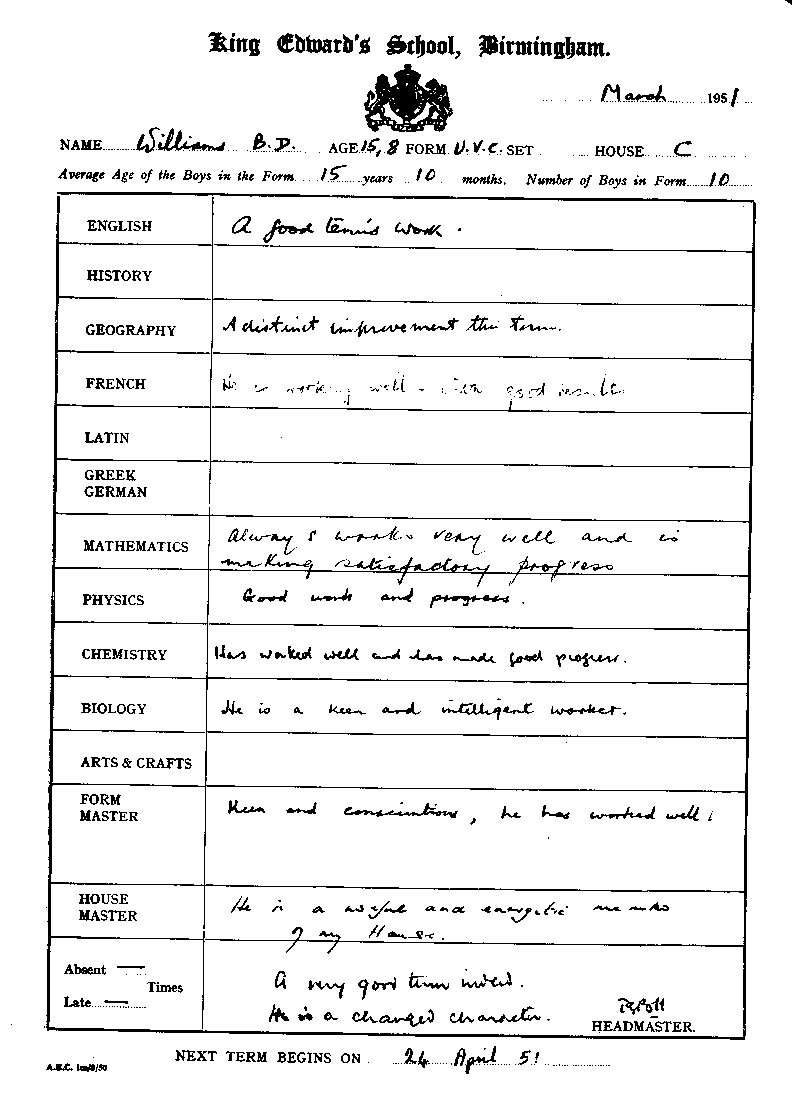 King Edward's School, Birmingham.
March 1951
NAME Williams B.D. AGE 15,8 FORM U.V.C. SET HOUSE C
Average Age of the Boys in the Form 15 years 10 months. Number of Boys in Form 10
ENGLISH A good term's work.
HISTORY
GEOGRAPHY A distinct improvement this term.
FRENCH He is working well - with good results
LATIN
GREEK
GERMAN
MATHEMATICS Always works very well and is
making satisfactory progress
PHYSICS Good work and progress.
CHEMISTRY Has worked well and has made good progress.
BIOLOGY He is a keen and intelligent worker.
ARTS & CRAFTS
FORM
MASTER Keen and conscientious, he has worked well
HOUSE
MASTER He is a useful and energetic member
of my House.
Absent —
Times
Late —
A very good term indeed.
He is a changed character.
HEADMASTER.
NEXT TERM BEGINS ON 24 April 51
A.B.C. 1m/8/50